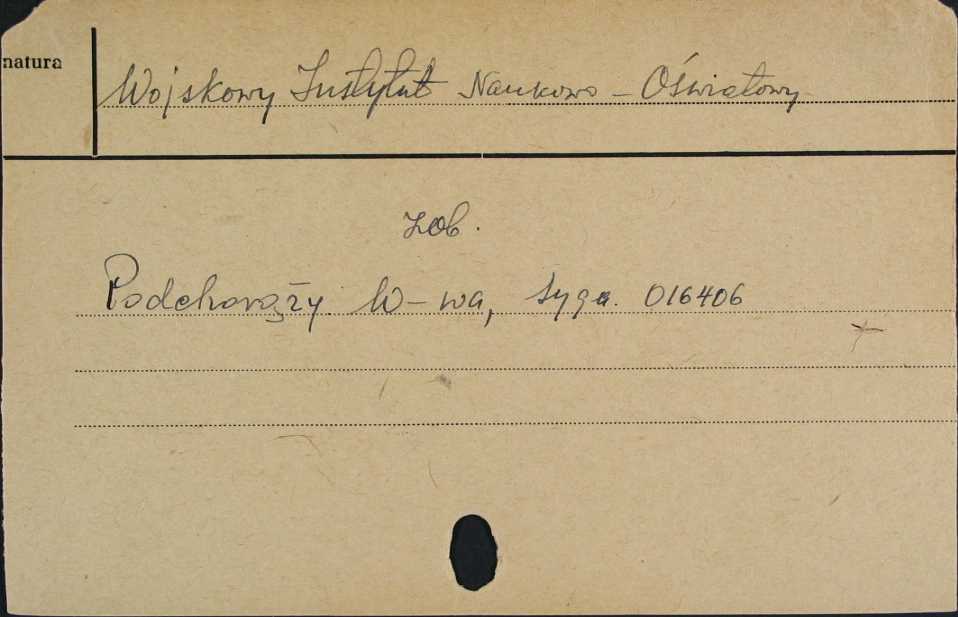 natura
Wojskowy Instytut Naukowo - Oświatowy
zob.
Podchorąży. W-wa, sygn. 016406